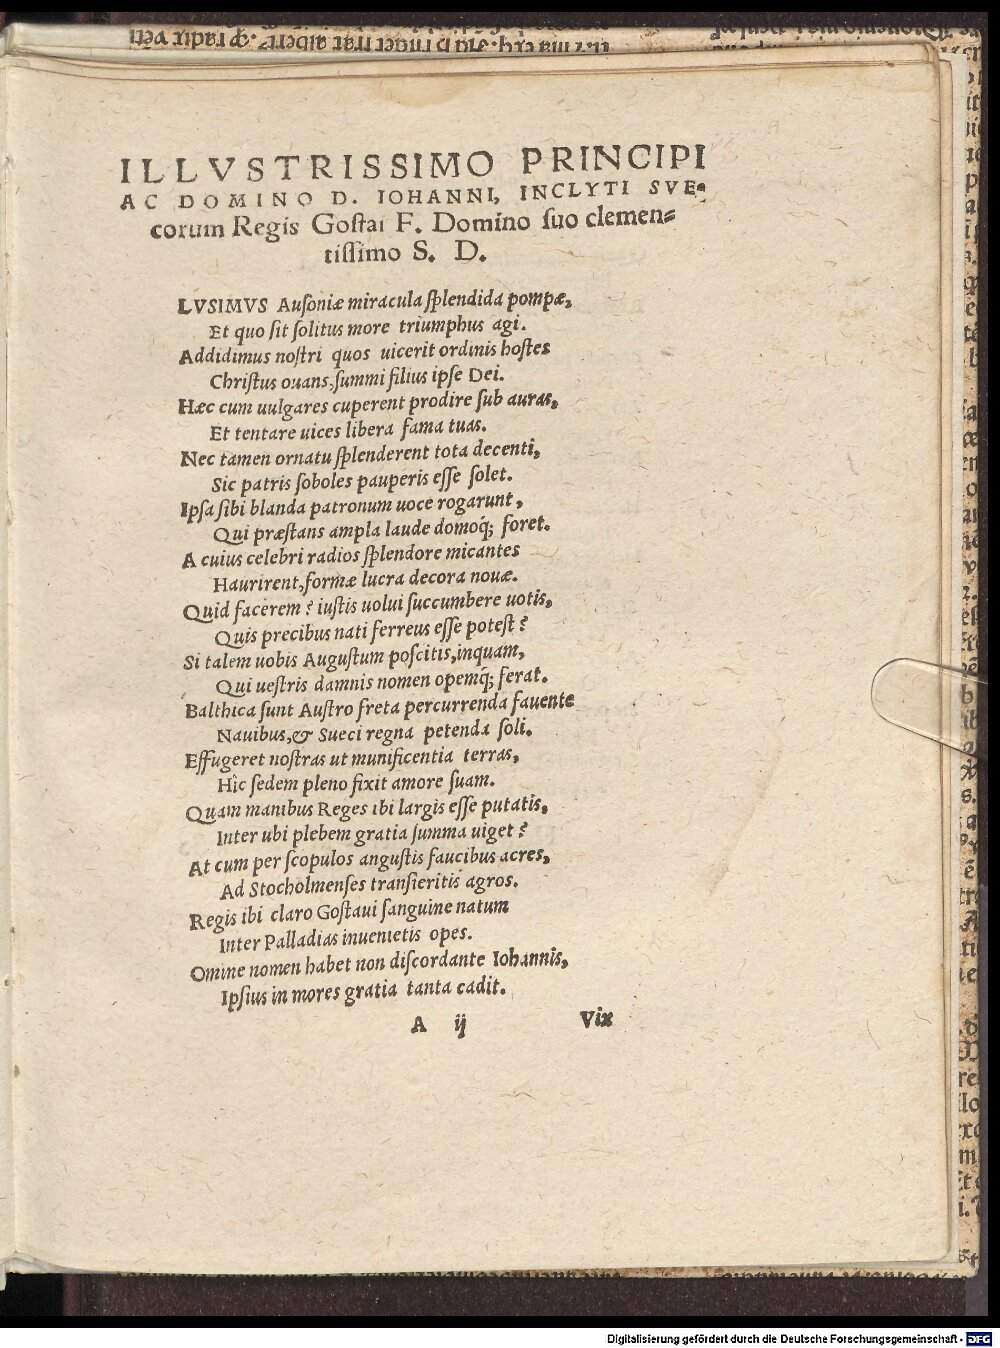 ILLVSTRISSIMO PRINCIPI
AC DOMINO D. IOHANNI, INCLYTI SVE⸗
corum Regis Goſtai F. Domino ſuo clemen⸗
tiſſimo S. D.
LVSIMVS Auſoniæ miracula ſplendida pompæ,
Et quo ſit ſolitus more triumphus agi.
Addidimus noſtri quos uicerit ordinis hoſtes
Chriſtus ouans, ſummi filius ipſe Dei.
Hæc cum uulgares cuperent prodire ſub auras,
Et tentare uices libera fama tuas.
Nec tamen ornatu ſplenderent tota decenti,
Sic patris ſoboles pauperis eſſe ſolet.
Ipſa ſibi blanda patronum uoce rogarunt,
Qui præſtans ampla laude domoq́; foret.
A cuius celebri radios ſplendore micantes
Haurirent, formæ lucra decora nouæ.
Quid facerem? iuſtis uolui ſuccumbere uotis,
Quis precibus nati ferreus eſſe poteſt?
Si talem uobis Auguſtum poſcitis, inquam,
Qui ueſtris damnis nomen opemq́; ferat.
Balthica ſunt Auſtro freta percurrenda fauente
Nauibus, & Sueci regna petenda ſoli.
Effugeret noſtras ut munificentia terras,
Hîc ſedem pleno fixit amore ſuam.
Quam manibus Reges ibi largis eſſe putatis,
Inter ubi plebem gratia ſumma uiget?
At cum per ſcopulos anguſtis faucibus acres,
Ad Stocholmenſes tranſieritis agros.
Regis ibi claro Goſtaui ſanguine natum
Inter Palladias inuenietis opes.
Omine nomen habet non diſcordante Iohannis,
Ipſius in mores gratia tanta cadit.
A ij Vix
Digitalisierung gefördert durch die Deutsche Forschungsgemeinschaft - DFG